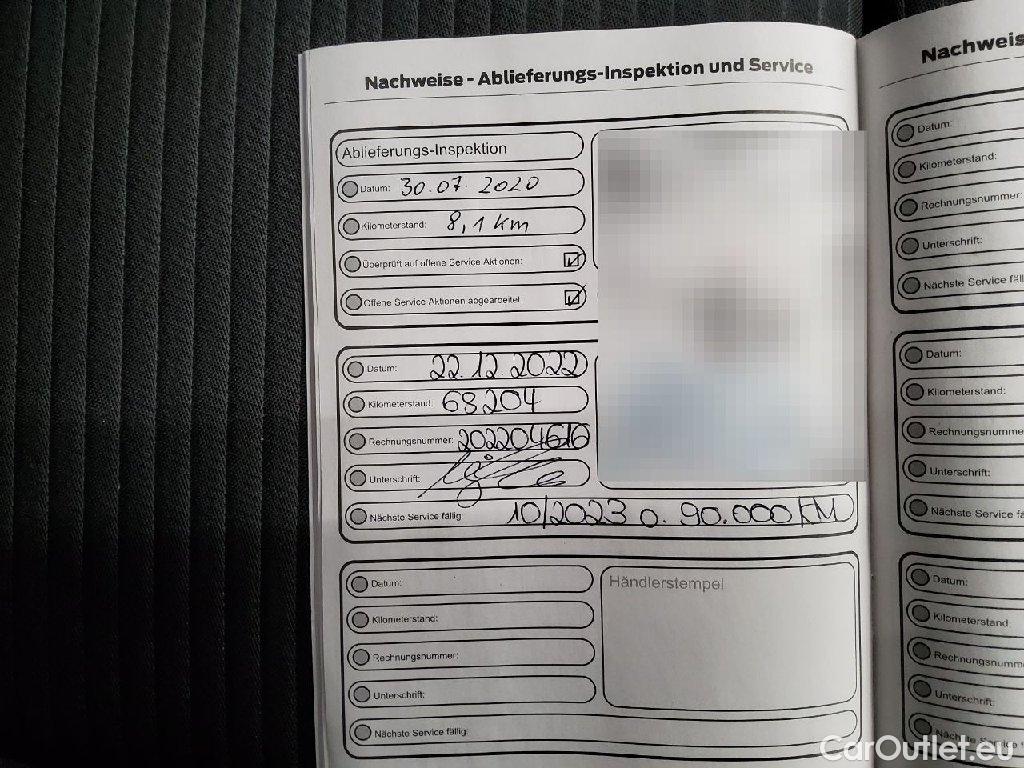 Nachweise - Ablieferungs-Inspektion und Service
Ablieferungs-Inspektion
Datum: 30.07 2020
Kilometerstand: 8,1 km
Überprüft auf offene Service Aktionen:
Offene Service Aktionen abgearbeitet
Datum: 22.12 2022
Kilometerstand:
Rechnungsnummer: 202204616
Unterschrift:
Nächste Service fällig: 10/2023 o. 90.000 KM
Datum:
Kilometerstand:
Rechnungsnummer:
Unterschrift:
Nächste Service fällig:
Händlerstempel
Nachweis
Datum:
Kilometerstand:
Rechnungsnummer:
Unterschrift:
Nächste Service fäll
Datum:
Kilometerstand:
Rechnungsnumme
Unterschrift:
Nächste Service fä
Datum:
Kilometerstand:
Rechnungsnumm
Unterschrift:
CarOutlet.eu